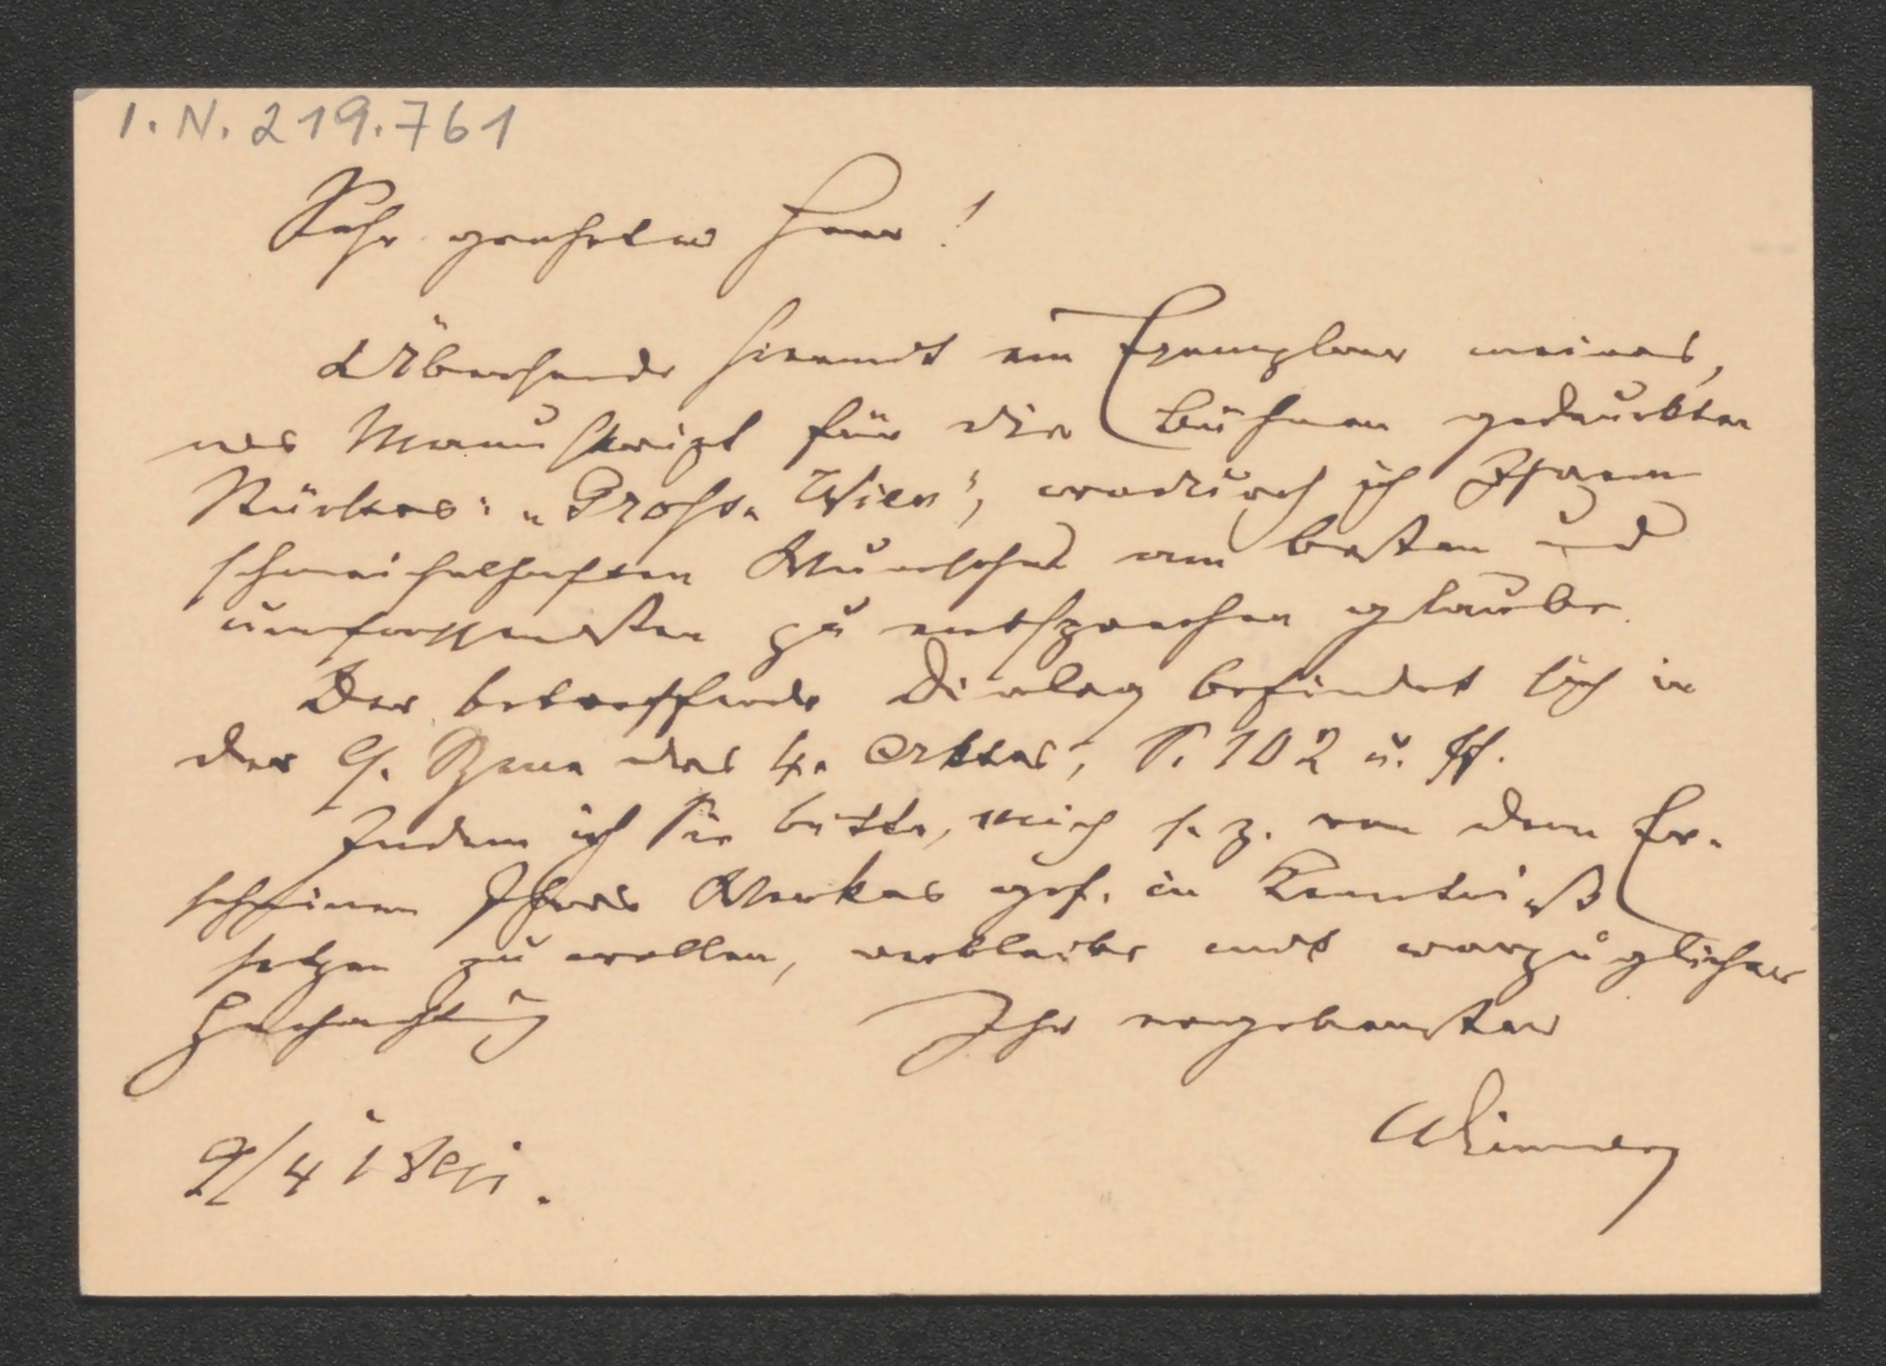 I. N. 219.761
Sehr geehrter Herr!
Übersende hiermit ein Exemplar meines,
als Manuskript für die Bühnen gedruckten
Stückes: „Gross-Wien", wodurch ich Ihrem
schmeichelhaften Wunsche am besten und
umfassendsten zu entsprechen glaube.
Der betreffende Dialog befindet sich in
der 9. Szene des 4. Aktes, S. 102 u. ff.
Indem ich Sie bitte, mich s. z. von dem Er-
scheinen Ihres Werkes gef. in Kenntniß
setzen zu wollen, verbleibe mit vorzüglicher
Hochachtung Ihr ergebenster
9/4